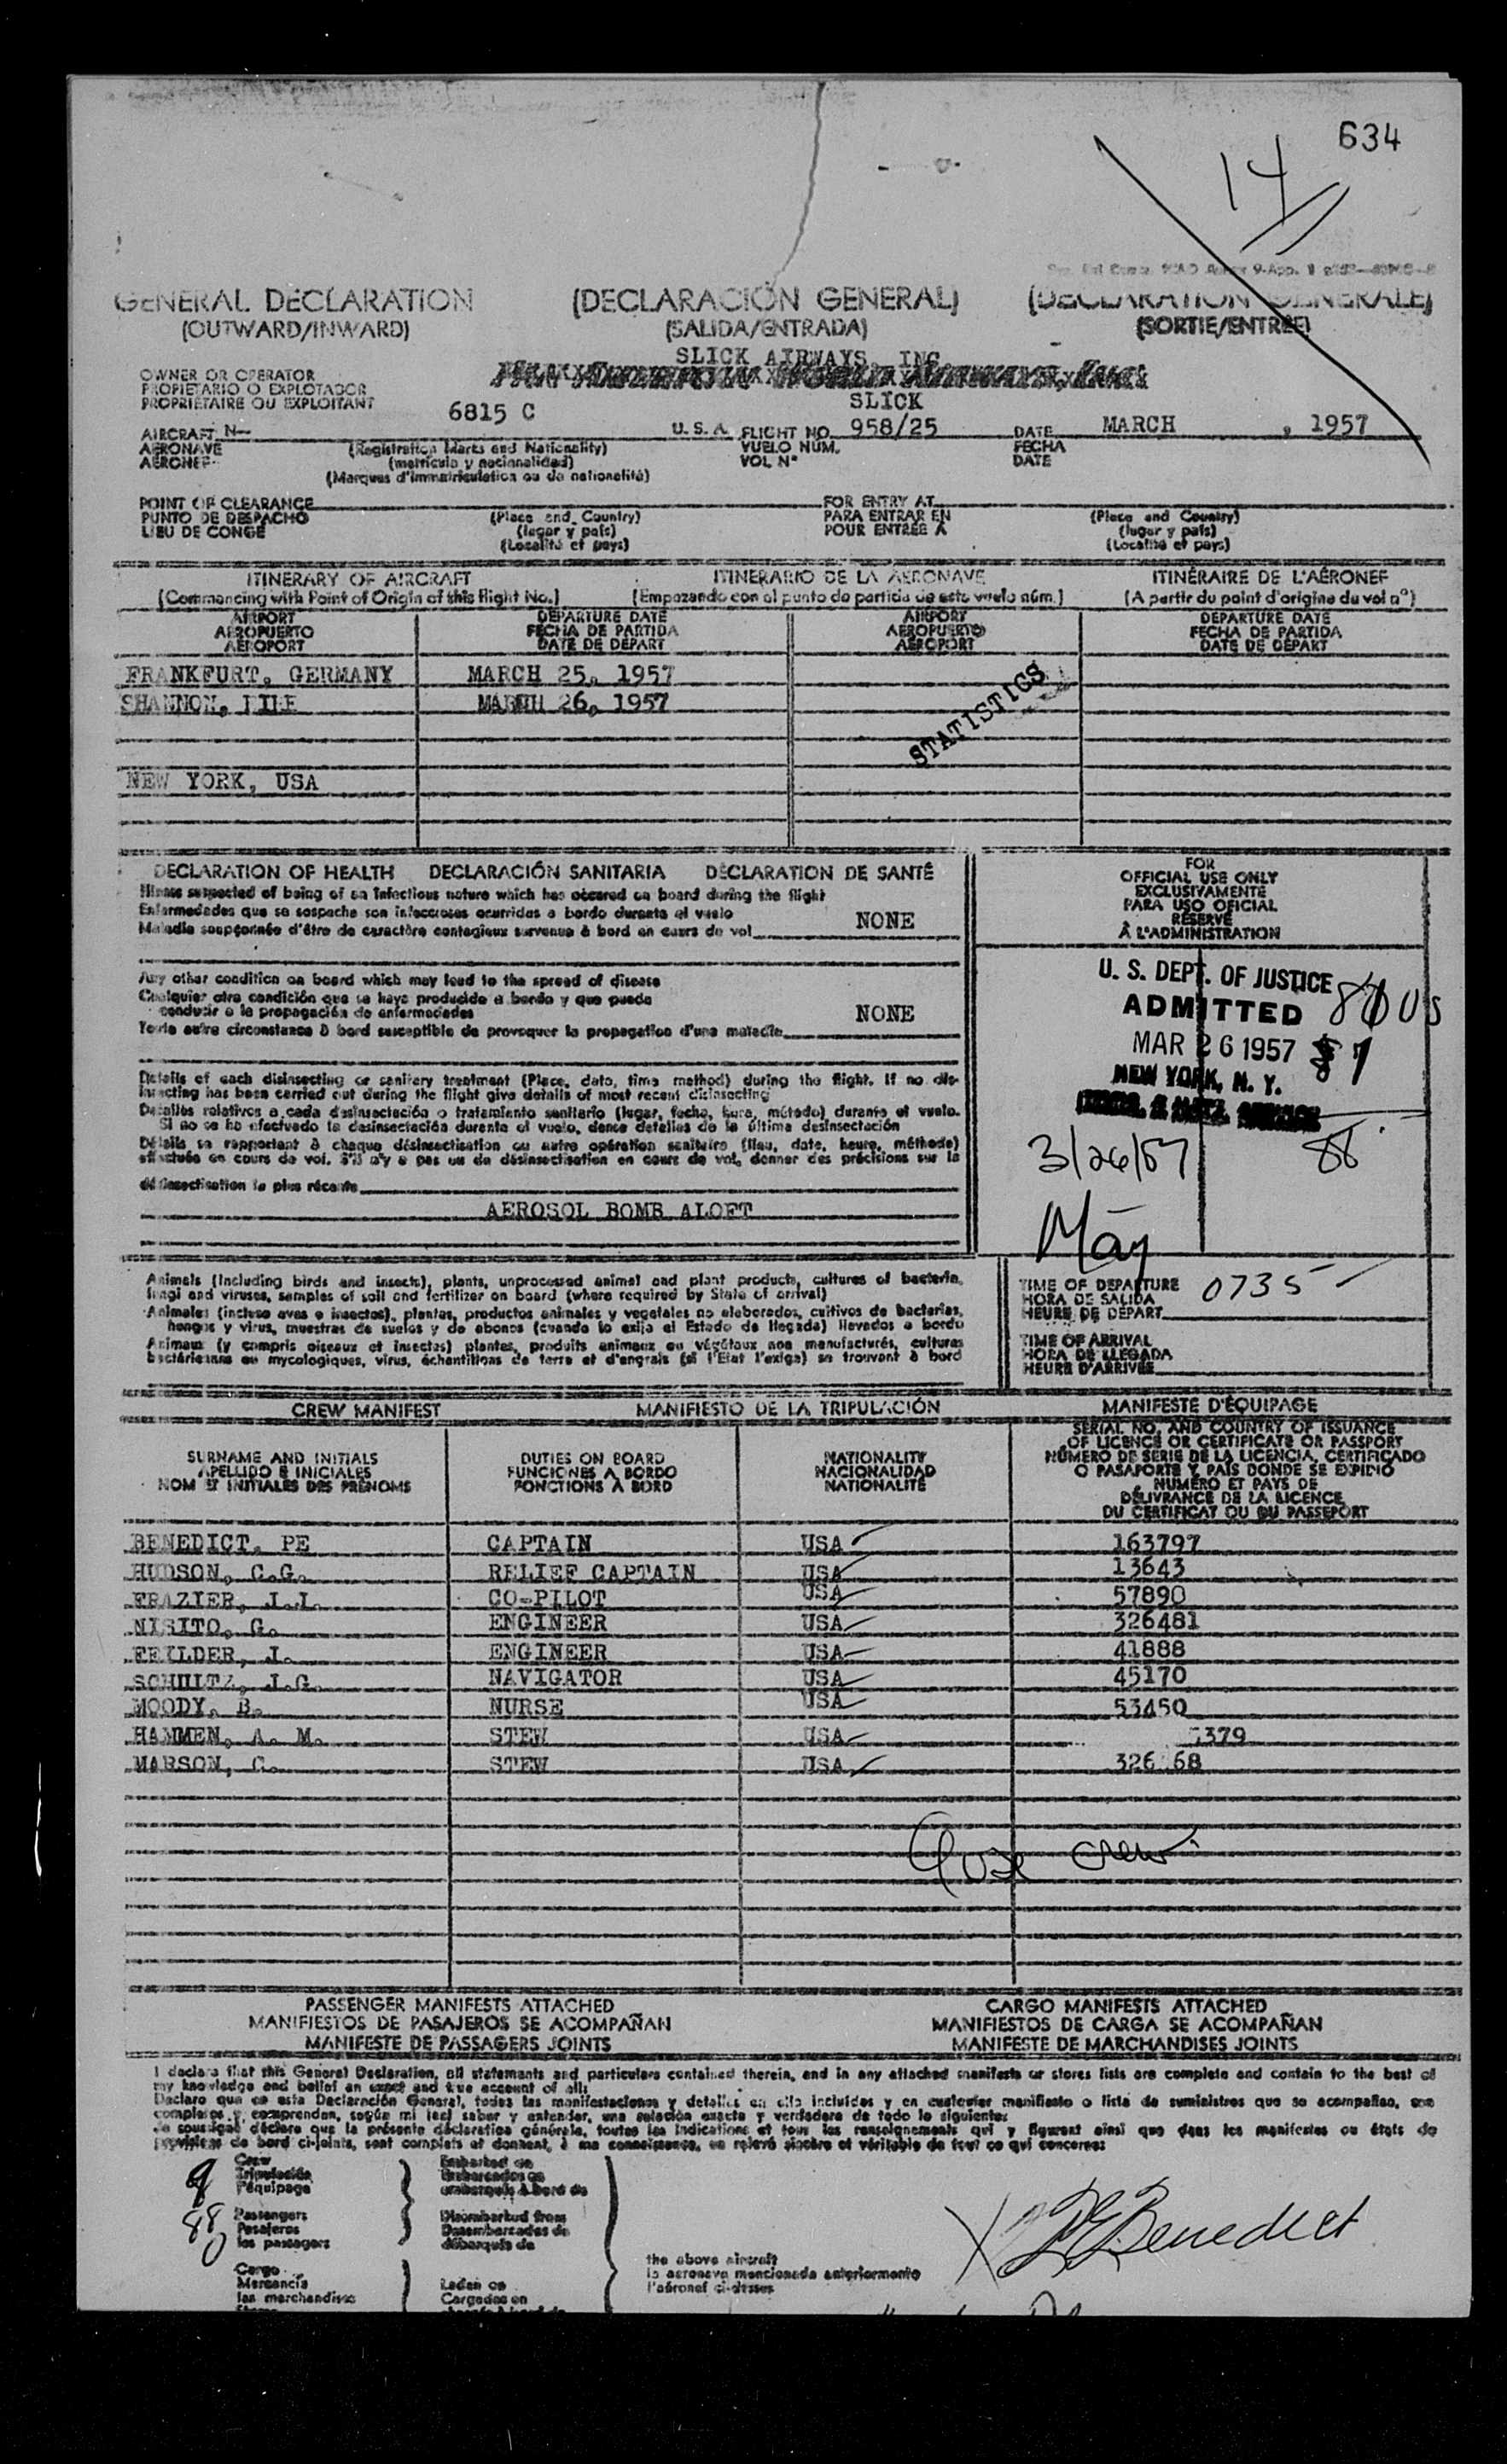 634
14
GENERAL DECLARATION (DECLARACIÓN GENERAL) (DECLARATION GENERALE)
(OUTWARD/INWARD) (SALIDA/ENTRADA) (SORTIE/ENTRÉE)
SLICK AIRWAYS, INC
OWNER OR OPERATOR
PROPIETARIO O EXPLOTADOR
PROPRIETAIRE OU EXPLOITANT
SLICK
AIRCRAFT N— 6815 C U. S. A. FLIGHT NO. 958/25 DATE MARCH , 1957
AERONAVE (Registration Marks and Nationality) VUELO NÚM. FECHA
AERONEF (matrícula y nacionalidad) VOL Nº DATE
(Marques d'immatriculation ou de nationalité)
POINT OF CLEARANCE FOR ENTRY AT
PUNTO DE DESPACHO (Place and Country) PARA ENTRAR EN (Place and Country)
LIEU DE CONGÉ (lugar y país) POUR ENTRÉE À (lugar y país)
(Localité et pays) (Localité et pays)
ITINERARY OF AIRCRAFT ITINERARIO DE LA AERONAVE ITINÉRAIRE DE L'AÉRONEF
(Commencing with Point of Origin of this flight No.) (Empezando con el punto de partida de este vuelo núm.) (A partir du point d'origine du vol nº)
AIRPORT DEPARTURE DATE AIRPORT DEPARTURE DATE
AEROPUERTO FECHA DE PARTIDA AEROPUERTO FECHA DE PARTIDA
AÉROPORT DATE DE DÉPART AÉROPORT DATE DE DÉPART
FRANKFURT, GERMANY MARCH 25, 1957
SHANNON, MARCH 26, 1957
STATISTICS
NEW YORK, USA
DECLARATION OF HEALTH DECLARACIÓN SANITARIA DÉCLARATION DE SANTÉ
Illness suspected of being of an infectious nature which has occured on board during the flight
Enfermedades que se sospecha son infecciosas ocurridas a bordo durante el vuelo
Maladie soupçonnée d'être de caractère contagieux survenue à bord en cours de vol NONE
Any other condition on board which may lead to the spread of disease
Cualquier otra condición que se haya producido a bordo y que pueda
conducir a la propagación de enfermedades NONE
Toute autre circonstance à bord susceptible de provoquer la propagation d'une maladie
Details of each disinsecting or sanitary treatment (Place, date, time method) during the flight. If no dis-
insecting has been carried out during the flight give details of most recent disinsecting
Detalles relativos a cada desinsectación o tratamiento sanitario (lugar, fecha, hora, método) durante el vuelo.
Si no se ha efectuado la desinsectación durante el vuelo, dense detalles de la última desinsectación
Détails se rapportant à chaque désinsectisation ou autre opération sanitaire (lieu, date, heure, méthode)
effectuée en cours de vol. S'il n'y a pas eu de désinsectisation en cours de vol, donner des précisions sur la
désinsectisation la plus récente
AEROSOL BOMB ALOFT
FOR
OFFICIAL USE ONLY
EXCLUSIVAMENTE
PARA USO OFICIAL
RÉSERVÉ
À L'ADMINISTRATION
U. S. DEPT. OF JUSTICE
ADMITTED
MAR 26 1957
NEW YORK, N. Y.
3/26/57 88
Animals (including birds and insects), plants, unprocessed animal and plant products, cultures of bacteria,
fungi and viruses, samples of soil and fertilizer on board (where required by State of arrival)
Animales (incluso aves e insectos), plantas, productos animales y vegetales no elaborados, cultivos de bacterias,
hongos y virus, muestras de suelos y de abonos (cuando lo exija el Estado de llegada) llevados a bordo
Animaux (y compris oiseaux et insectes) plantes, produits animaux ou végétaux non manufacturés, cultures
bactériennes ou mycologiques, virus, échantillons de terre et d'engrais (si l'Etat l'exige) se trouvant à bord
TIME OF DEPARTURE 0735
HORA DE SALIDA
HEURE DE DÉPART
TIME OF ARRIVAL
HORA DE LLEGADA
HEURE D'ARRIVÉE
CREW MANIFEST MANIFIESTO DE LA TRIPULACIÓN MANIFESTE D'ÉQUIPAGE
SURNAME AND INITIALS
APELLIDO E INICIALES
NOM ET INITIALES DES PRÉNOMS
DUTIES ON BOARD
FUNCIONES A BORDO
FONCTIONS À BORD
NATIONALITY
NACIONALIDAD
NATIONALITÉ
SERIAL NO. AND COUNTRY OF ISSUANCE
OF LICENCE OR CERTIFICATE OR PASSPORT
NÚMERO DE SERIE DE LA LICENCIA, CERTIFICADO
O PASAPORTE Y PAÍS DONDE SE EXPIDIÓ
NUMÉRO ET PAYS DE
DÉLIVRANCE DE LA LICENCE
DU CERTIFICAT OU DU PASSEPORT
BENEDICT, PE CAPTAIN USA 163797
HUDSON, C.G. RELIEF CAPTAIN USA 13643
FRAZIER, J.L. CO-PILOT USA 57890
NISITO, G. ENGINEER USA 326481
FEILDER, J. ENGINEER USA 41888
SCHULTZ, J.G. NAVIGATOR USA 45170
MOODY, B. NURSE USA 53450
HAMMEN, A. M. STEW USA 379
MARSON, C. STEW USA 326 68
crew
PASSENGER MANIFESTS ATTACHED CARGO MANIFESTS ATTACHED
MANIFIESTOS DE PASAJEROS SE ACOMPAÑAN MANIFIESTOS DE CARGA SE ACOMPAÑAN
MANIFESTE DE PASSAGERS JOINTS MANIFESTE DE MARCHANDISES JOINTS
I declare that this General Declaration, all statements and particulars contained therein, and in any attached manifests or stores lists are complete and contain to the best of
my knowledge and belief an exact and true account of all:
Declaro que en esta Declaración General, todas las manifestaciones y detalles en ella incluidos y en cualesquier manifiesto o lista de suministros que se acompañan, son
completos y comprenden, según mi leal saber y entender, una relación exacta y verdadera de todo lo siguiente:
Je soussigné déclare que la présente déclaration générale, toutes les indications et tous les renseignements qui y figurent ainsi que dans les manifestes ou états de
provisions de bord ci-joints, sont complets et donnent, à ma connaissance, un relevé sincère et véritable de tout ce qui concerne:
9 Crew
Tripulación
l'équipage
Embarked on
Embarcados en
embarqués à bord de
88 Passengers
Pasajeros
les passagers
Disembarked from
Desembarcados de
débarqués de
Cargo
Mercancía
les marchandises
Laden on
Cargados en
the above aircraft
la aeronave mencionada anteriormente
l'aéronef ci-dessus
X PE Benedict